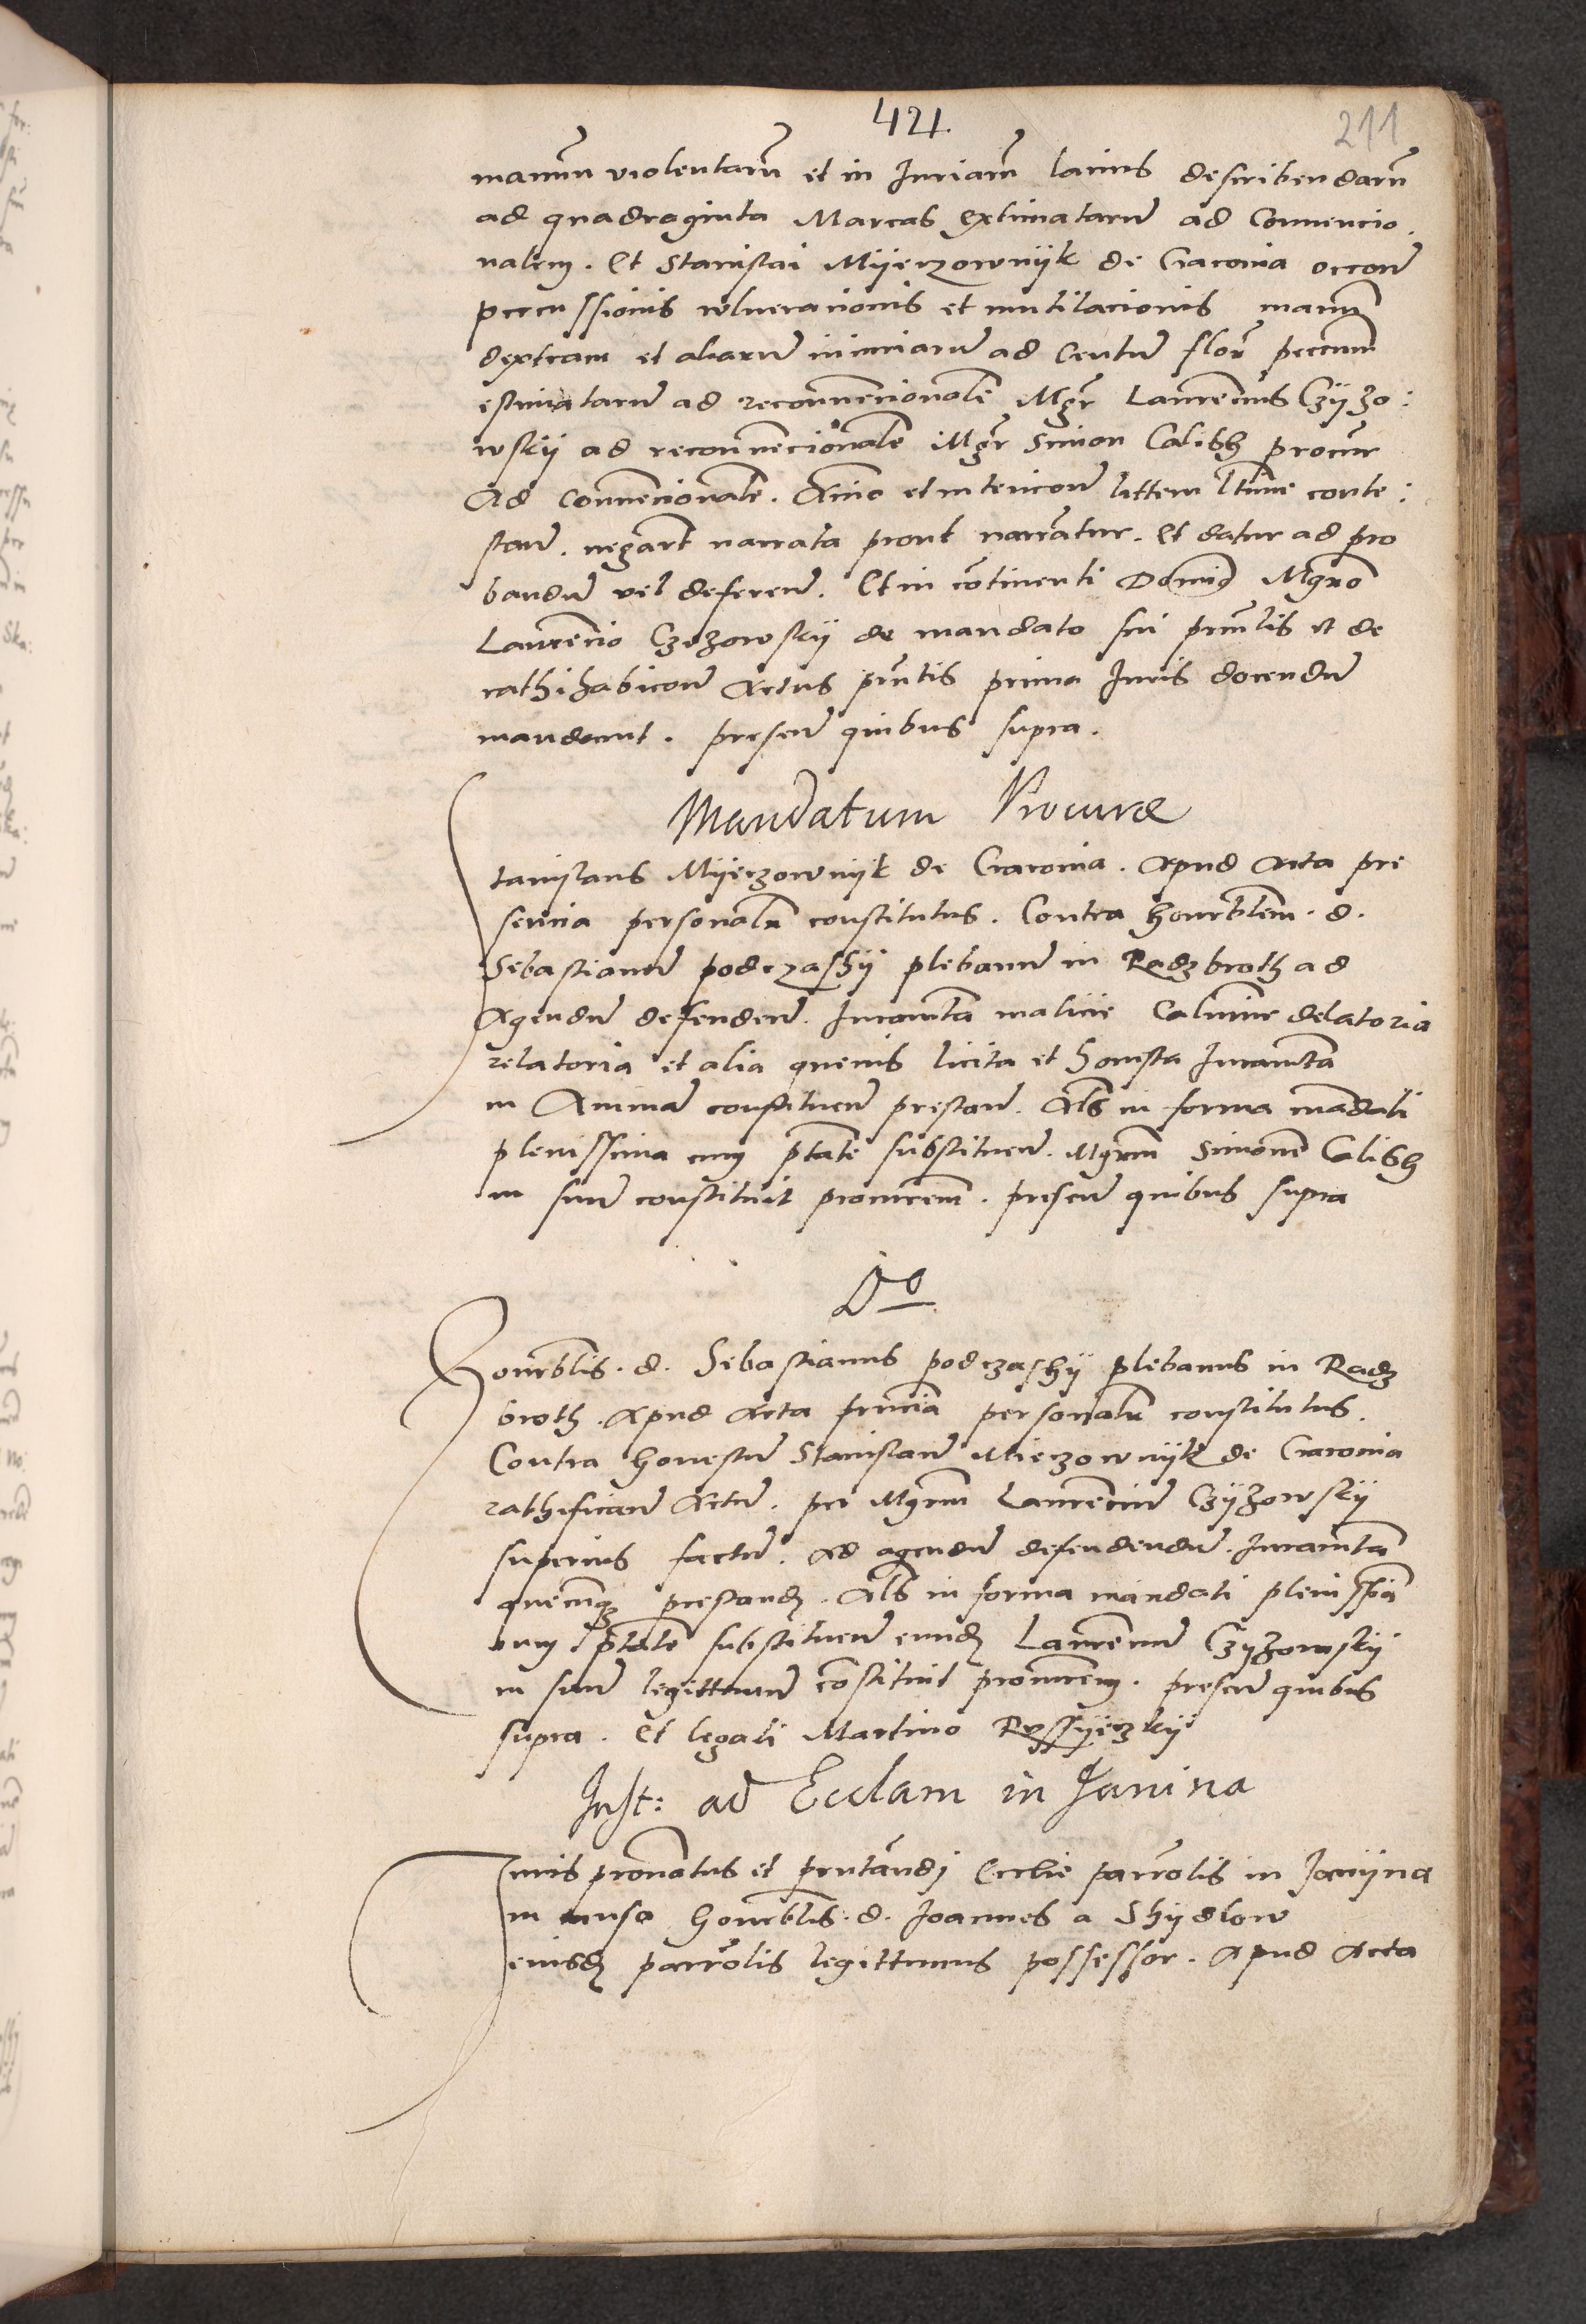 421.
211
manuum violentarum et in Iuriam latius describendarum
ad quadraginta Marcas extimatarum ad Convencio.
nalem. Et Stanislai Mijerzownijk de Cracovia occone
percussionis vulneracionis et mutilacionis manum
dextram et aliarum iniuriarum ad Centum flor peccum
estimatarum ad reconvencionale Mgr Laurencius Czijzo:
wskij ad reconvencionale Mgr Simon Calissh procur
Ad Convencionale. Animo et intencone littem ltime conte:
stan. negant narrata prout narrantur. Et datur ad pro
bandum vel deferen. Et in continenti Domino Mgro
Laurencio Czizowskij de mandato sui principalis et de
rathihabicone Actus pntis prima Iuris docendum
mandarunt. presen quibus supra.
Mandatum Procure
Stanislaus Mijerzownijk de Cracovia. Apud Acta pre
sencia personalr constitutus. Contra honrblem. d.
Sebastianum podczashij plebanum in Radzbroth ad
Agendum defenden. Iuramta malicie Calumnie delatoria
relatoria et alia quevis licita et honesta Iuramta
in Animam constituen prestan. Als in forma mandati
plenissima cum ptate substituen. Mgrum Simonem Calissh
in suum constituit procurem. presen quibus supra
Do
Honrblis. d. Sebastianus podczashij plebanus in Radz
broth. Apud Acta psencia personalr constitutus.
Contra honestum Stanislaum Mierzownijk de Cracovia
rathifican Actum. per Mgrum Laurencium Czijzowskij
superius factum. Ad agendum defendendum. Iuramta
quecunq prestand. Als in forma mandati plenissima
cum ptate substituen eund Laurencium Czyzowskij
in suum legittimum constituit procurem. presen quibus
supra. Et legali Martino
Inst: ad Ecclam in Janina
Iuris pronatus et pntandi Ecclie parrolis in Janijna
in causa honrblis. d. Joannes a Shydlow
eiusd parrolis legittimus possessor. Apud Acta